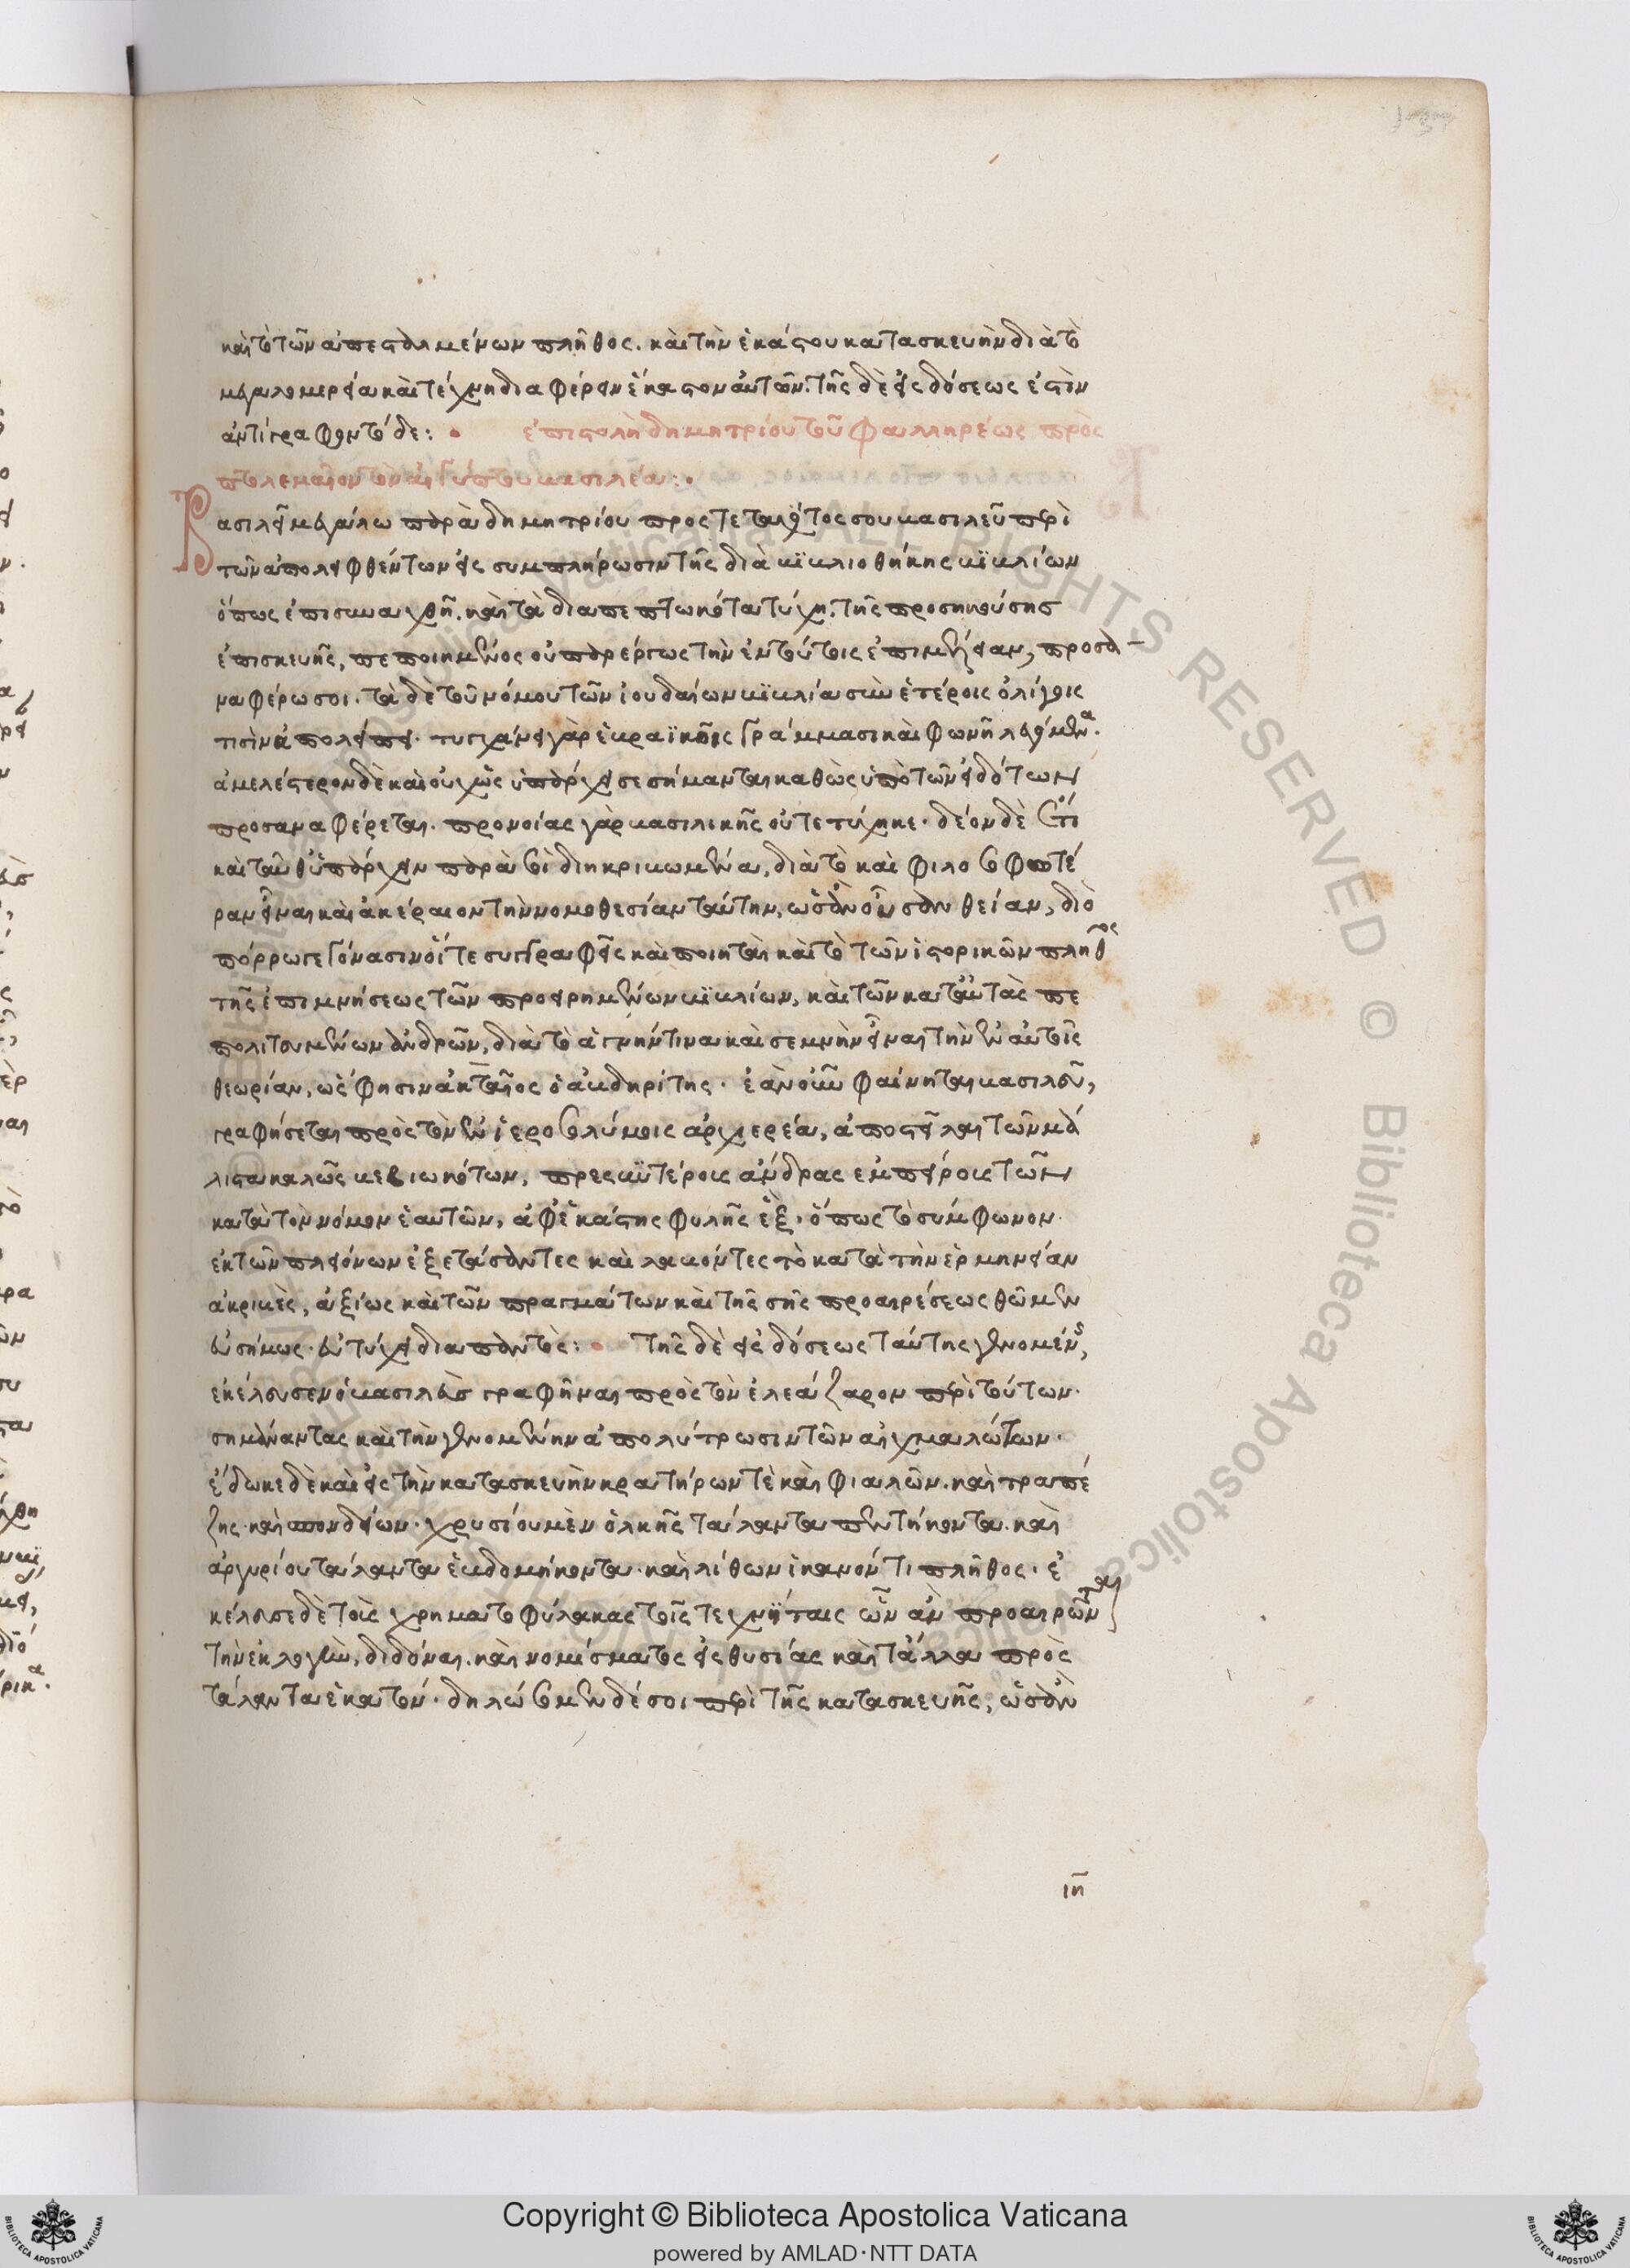 καὶ τὸ τῶν ἀπεσταλμένων πλῆθος. καὶ τὴν ἑκάστου κατασκευὴν διὰ τὸ
μεγαλομερεία καὶ τέχνη διαφέρειν ἕκαστον αὐτῶν. τῆς δὲ εἰσδόσεως ἐστὶν
ἀντίγραφον τόδε: • ἐπιστολὴ δημητρίου τοῦ φαλληρέως πρὸς
πτολεμαῖον τὸν αἰγύπτου βασιλέα: •
Βασιλεῖ μεγάλω παρὰ δημητρίου προστεταχότος σου βασιλεῦ περὶ
τῶν ἀπολειφθέντων εἰς συμπλήρωσιν τῆς διὰ βϊβλιοθήκης βϊβλίων
ὅπως ἐπισυναχθῆ. καὶ τὰ διαπεπτωκότα τύχη. τῆς προσηκούσης
ἐπισκευῆς, πεποιημένος οὐ παρέργως τὴν ἐν τούτοις ἐπιμέλειαν, προσα
ναφέρω σοι. τὰ δὲ τοῦ νόμου τῶν ἰουδαίων βϊβλία σὺν ἑτέροις ὀλίγοις
τισὶν ἀπολείπει. τυγχάνει γὰρ ἑβραϊκοῖς γράμμασι καὶ φωνῆ λεγόμενα.
ἀμελέστερον δὲ καὶ οὐχ ὡς ὑπάρχει σεσήμανται καθὼς ὑπὸ τῶν εἰδότων
προσαναφέρεται. προνοίας γὰρ βασιλικῆς οὐ τετύχηκε. δέον δὲ ἐστὶ
καὶ ταῦθ' ὑπάρχειν παρὰ σοὶ διηκριβωμένα, διὰ τὸ καὶ φιλοσοφωτέ
ραν εἶναι καὶ ἀκέραιον τὴν νομοθεσίαν ταύτην, ὡσὰν οὖσαν θείαν, διὸ
πόρρω γεγόνασιν οἵ τε συγγραφεῖς καὶ ποιηταὶ καὶ τὸ τῶν ἱστορικῶν πλῆθος
τῆς ἐπιμνήσεως τῶν προειρημένων βϊβλίων, καὶ τῶν κατ' αὐτὰς πε
πολιτευμένων ἀνδρῶν, διὰ τὸ ἁγνήν τινα καὶ σεμνὴν εἶναι τὴν ἐν αὐτοῖς
θεωρίαν, ὡς φησιν ἑκαταῖος ὁ ἀβδηρίτης. ἐὰν οὖν φαίνηται βασιλεῦ,
γραφήσεται πρὸς τὸν ἐν ἱεροσολύμοις ἀρχιερέα, ἀποστεῖλαι τῶν μά
λιστα καλῶς βεβιωκότων, πρεσβυτέροις ἄνδρας ἐμπείροις τῶν
κατὰ τὸν νόμον ἑαυτῶν, ἀφ' ἑκάστης φυλῆς ἕξ. ὅπως τὸ σύμφωνον
ἐκ τῶν πλειόνων ἐξετάσαντες καὶ λαβόντες τὸ κατὰ τὴν ἑρμηνείαν
ἀκριβὲς, ἀξίως καὶ τῶν πραγμάτων καὶ τῆς σῆς προαιρέσεως θῶμεν
εὐσήμως. εὐτύχει διαπαντός: • τῆς δὲ εἰσδόσεως ταύτης γενομένης,
ἐκέλευσεν ὁ βασιλεὺς γραφῆναι πρὸς τὸν ἐλεάζαρον περὶ τούτων.
σημάναντας καὶ τὴν γενομένην ἀπολύτρωσιν τῶν αἰχμαλώτων.
ἔδωκε δὲ καὶ εἰς τὴν κατασκευὴν κρατήρων τὲ καὶ φιαλῶν. καὶ τραπέ
ζης. καὶ σπονδείων. χρυσίου μὲν ὁλκῆς τάλαντα πεντήκοντα. καὶ
ἀργυρίου τάλαντα ἑβδομήκοντα. καὶ λίθων ἱκανόν τι πλῆθος. ἐ
κέλευσε δὲ τοὺς χρηματοφύλακας τοῖς τεχνίταις ὧν ἂν προαιρῶνται
τὴν ἐκλογὴν διδόναι. καὶ νομίσματος εἰς θυσίας καὶ τἄλλα πρὸς
τάλαντα ἑκατόν. δηλώσομεν δέ σοι περὶ τῆς κατασκευῆς, ὡσὰν
ιη